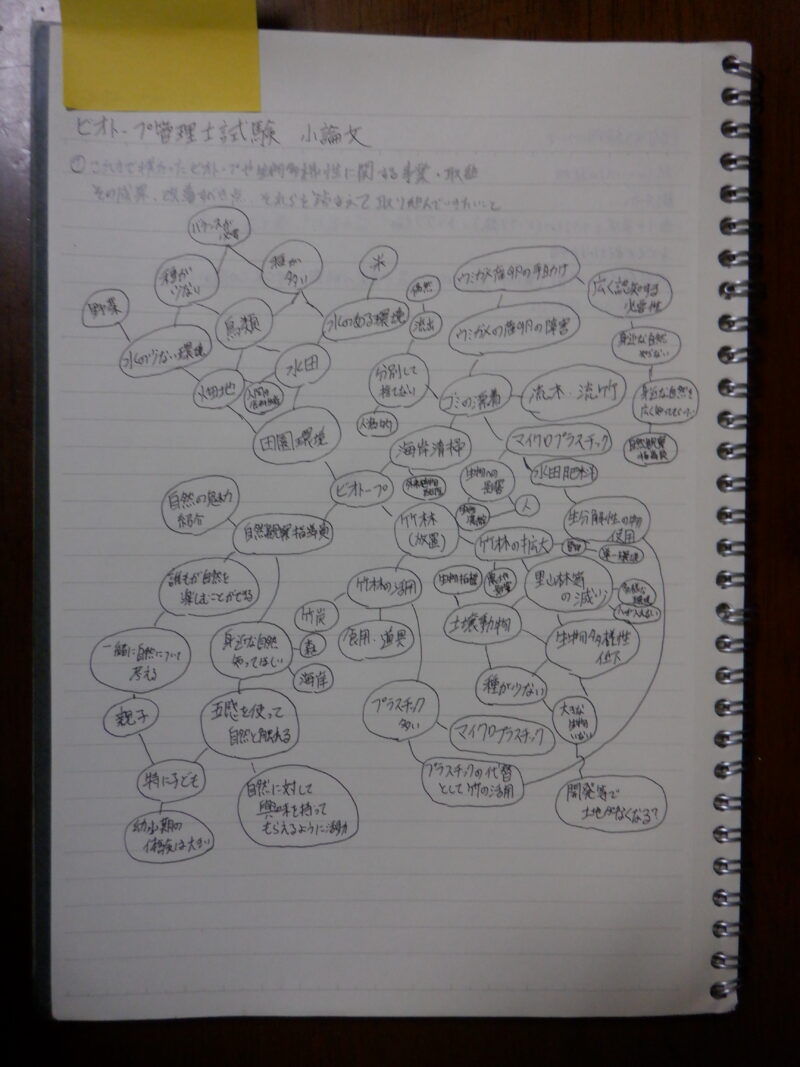 ビオトープ管理士試験 小論文
① これまで携わったビオトープや生物多様性に関する事業・取組
その成果、改善すべき点、それらを踏まえて取り組んでいきたいこと
バランスが
必要
種が
少ない
種が
多い
米
野菜
鳥類
水のある環境
水の少ない環境
水田
畑地
田園環境
偶然
流出
分別して
捨てない
人為的
ウミガメ産卵の手助け
ウミガメの産卵の障害
広く認知する
必要性
身近な自然
身近な自然を
自然観察
指導員
ゴミの漂着
流木・流竹
海岸清掃
マイクロプラスチック
水田肥料
ビオトープ
生物への
影響
人
生分解性の物
使用
自然の魅力
紹介
自然観察指導員
竹林
(放置)
竹林の拡大
単一環境
誰もが自然を
楽しむことができる
竹林の活用
里山林等
の減少
多様な
環境
人が入れない
竹炭
食用・道具
土壌動物
生物多様性
低下
一緒に自然について
考える
身近な自然
知ってほしい
森
海岸
種が少ない
親子
五感を使って
自然と触れる
プラスチック
多い
マイクロプラスチック
大きな
生物
いない
特に子ども
自然に対して
興味を持って
もらえるように活動
プラスチックの代替
として竹の活用
開発等で
土地がなくなる?
幼少期の
体験は大きい